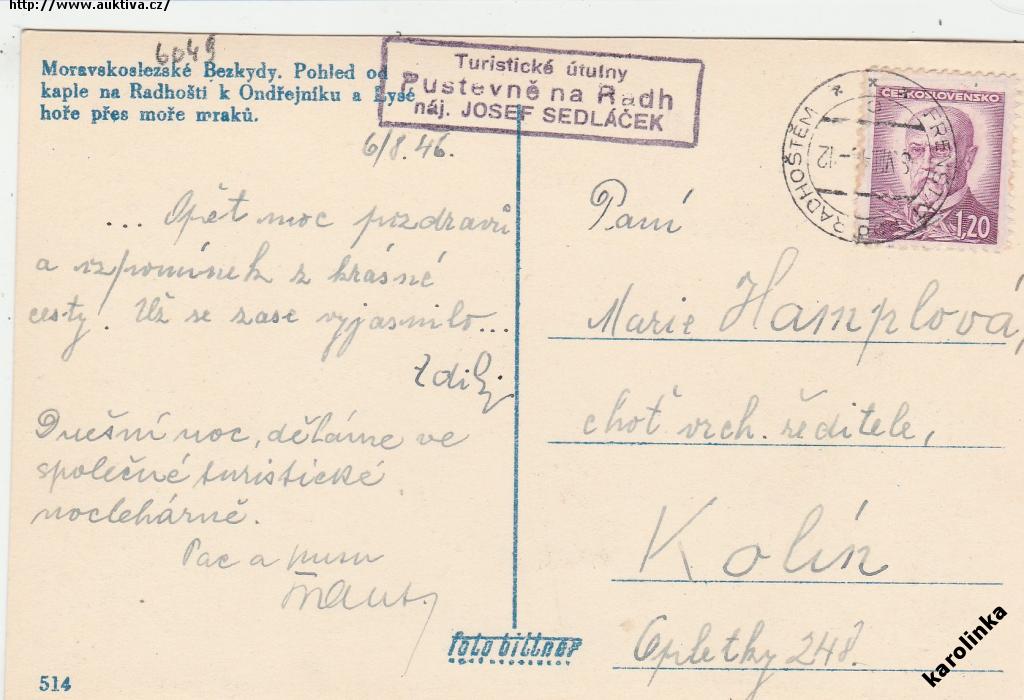 http://www.auktiva.cz/
6049
Moravskoslezské Bezkydy. Pohled od
kaple na Radhošti k Ondřejníku a Lysé
hoře přes moře mraků.
Turistické útulny
Pustevně na Radh
náj. JOSEF SEDLÁČEK
FRENŠTÁT
RADHOŠTĚM
ČESKOSLOVENSKO
1,20
6/8. 46.
... Opět moc pozdravů
a vzpomínek z krásné
cesty. Už se zase vyjasnilo...
Dnešní noc, děláme ve
společné turistické
noclehárně.
Pac a
Paní
Marie Hamplová,
choť vrch. ředitele,
Kolín
Opletky 248.
foto bittner
514
karolinka